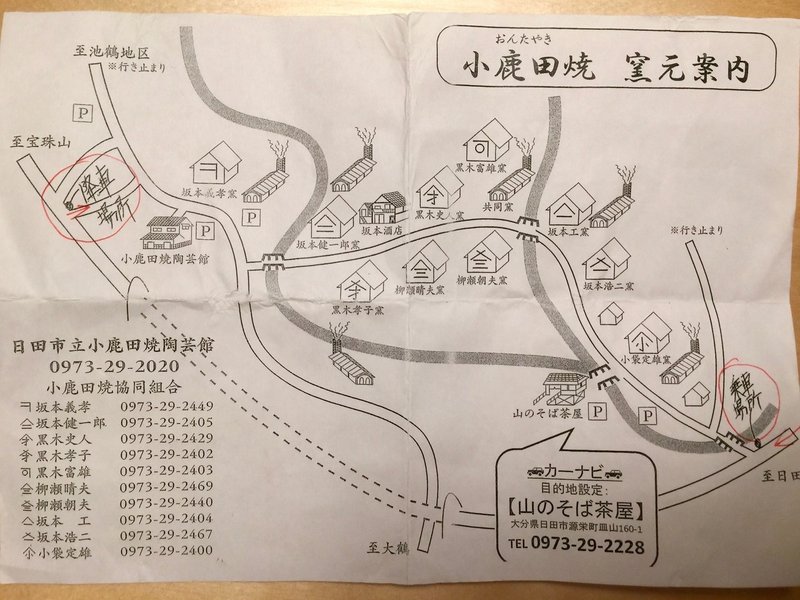 おんたやき
小鹿田焼 窯元案内
至池鶴地区
※行き止まり
P
至宝珠山
降車
場所
坂本義孝窯
P
P
小鹿田焼陶芸館
坂本健一郎窯
坂本酒店
黒木史人窯
黒木富雄窯
共同窯
坂本工窯
※行き止まり
黒木孝子窯
柳瀬晴夫窯
柳瀬朝夫窯
坂本浩二窯
小袋定雄窯
山のそば茶屋
P
P
乗車
場所
至日田
至大鶴
日田市立小鹿田焼陶芸館
0973-29-2020
小鹿田焼協同組合
坂本義孝 0973-29-2449
坂本健一郎 0973-29-2405
黒木史人 0973-29-2429
黒木孝子 0973-29-2402
黒木富雄 0973-29-2403
柳瀬晴夫 0973-29-2469
柳瀬朝夫 0973-29-2440
坂本 工 0973-29-2404
坂本浩二 0973-29-2467
小袋定雄 0973-29-2400
カーナビ
目的地設定:
【山のそば茶屋】
大分県日田市源栄町皿山160-1
TEL 0973-29-2228